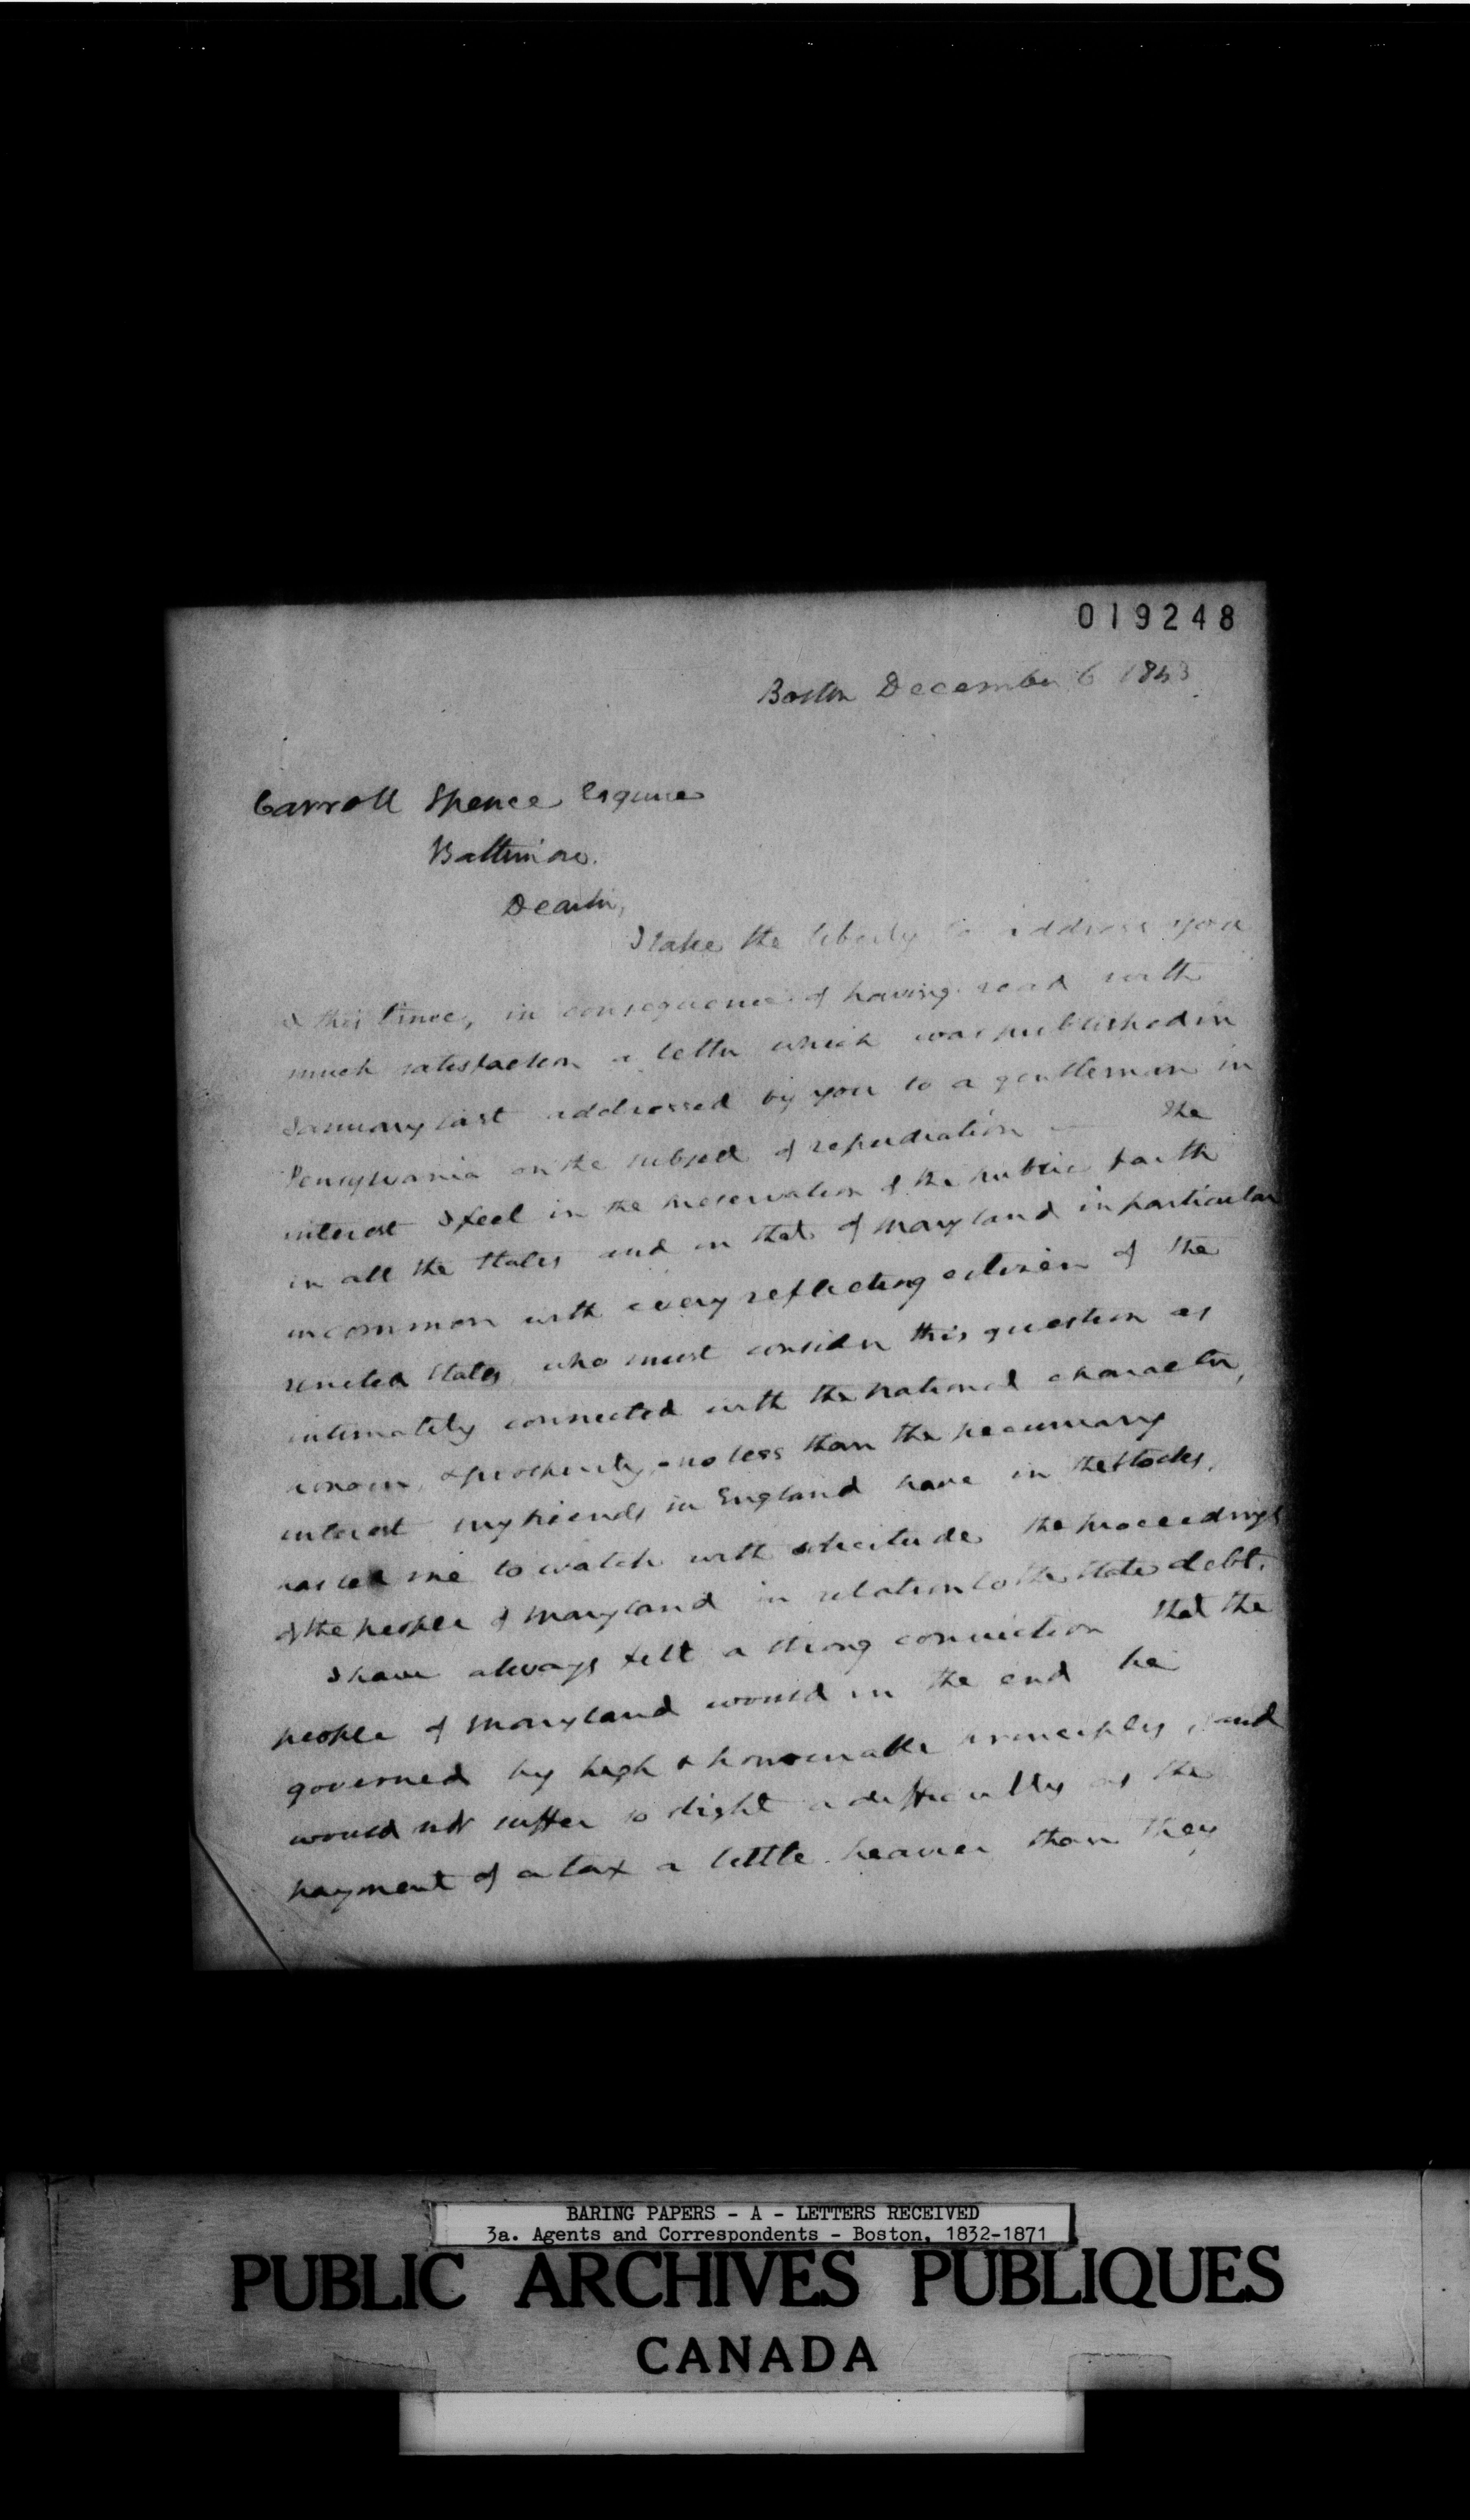 019248
Boston December 6 1843
Carroll Spence Esquire
Baltimore.
Dear sir,
I take the liberty to address you
at this time, in consequence of having read with
much satisfaction a letter which was published in
January last addressed by you to a gentleman in
Pensylvania on the subject of repudiation — The
interest I feel in the preservation of the public faith
in all the States and in that of Maryland in particular
in common with every reflecting citizen of the
United States, who must consider this question as
intimately connected with the national character,
honour, & prosperity, no less than the pecuniary
interest my friends in England have in the stocks,
has led me to watch with solicitude the proceedings
of the people of Maryland in relation to the State debt.
I have always felt a strong conviction that the
people of Maryland would in the end be
governed by high & honourable principles, and
would not suffer so slight a difficulty as the
payment of a tax a little heavier than they
BARING PAPERS - A - LETTERS RECEIVED
3a. Agents and Correspondents - Boston, 1832-1871
PUBLIC ARCHIVES PUBLIQUES
CANADA